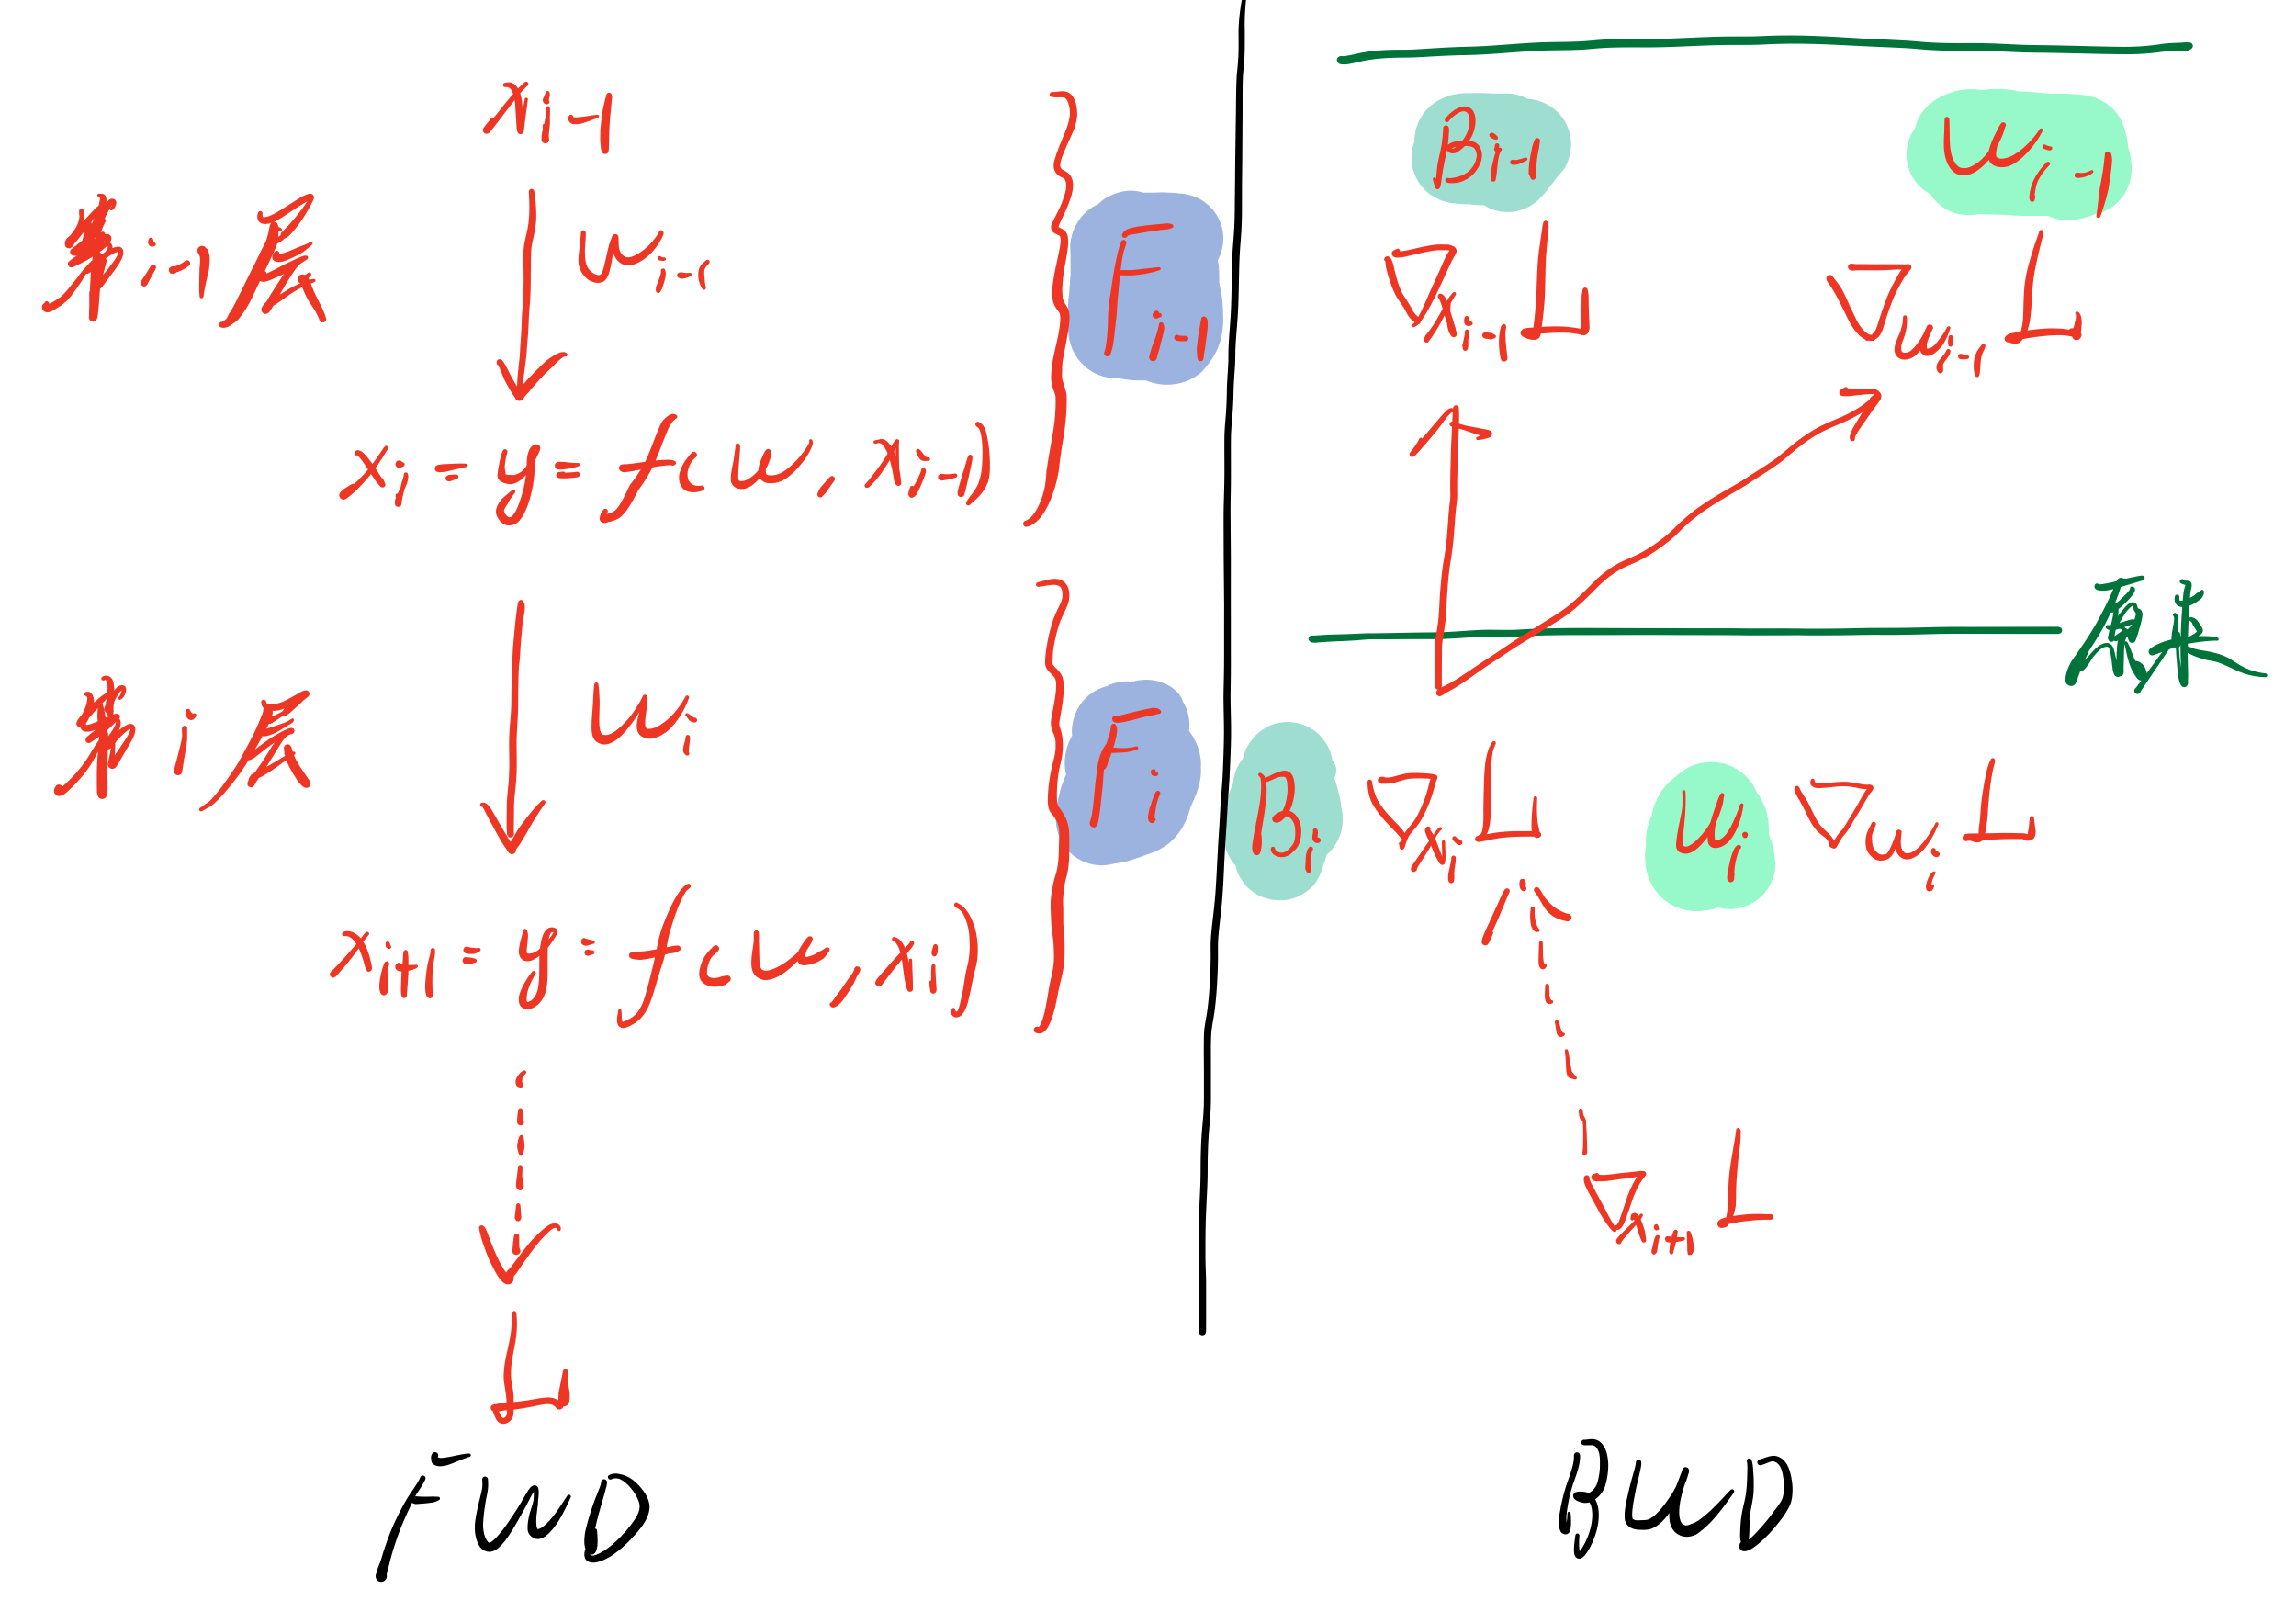 x_{i-1}
第i-1层
w_{i-1}
F_{i-1}
x_i = y = f(w, x_{i-1})
第i层
w_i
F_i
x_{i+1} = y = f(w, x_i)
L
FWD
B_{i-1}
w_{i-1}
∇_{x_{i-1}} L
∇_{w_{i-1}} L
原来
B_i
∇_{x_i} L
w_i
∇_{w_i} L
∇_{x_{i+1}} L
BWD